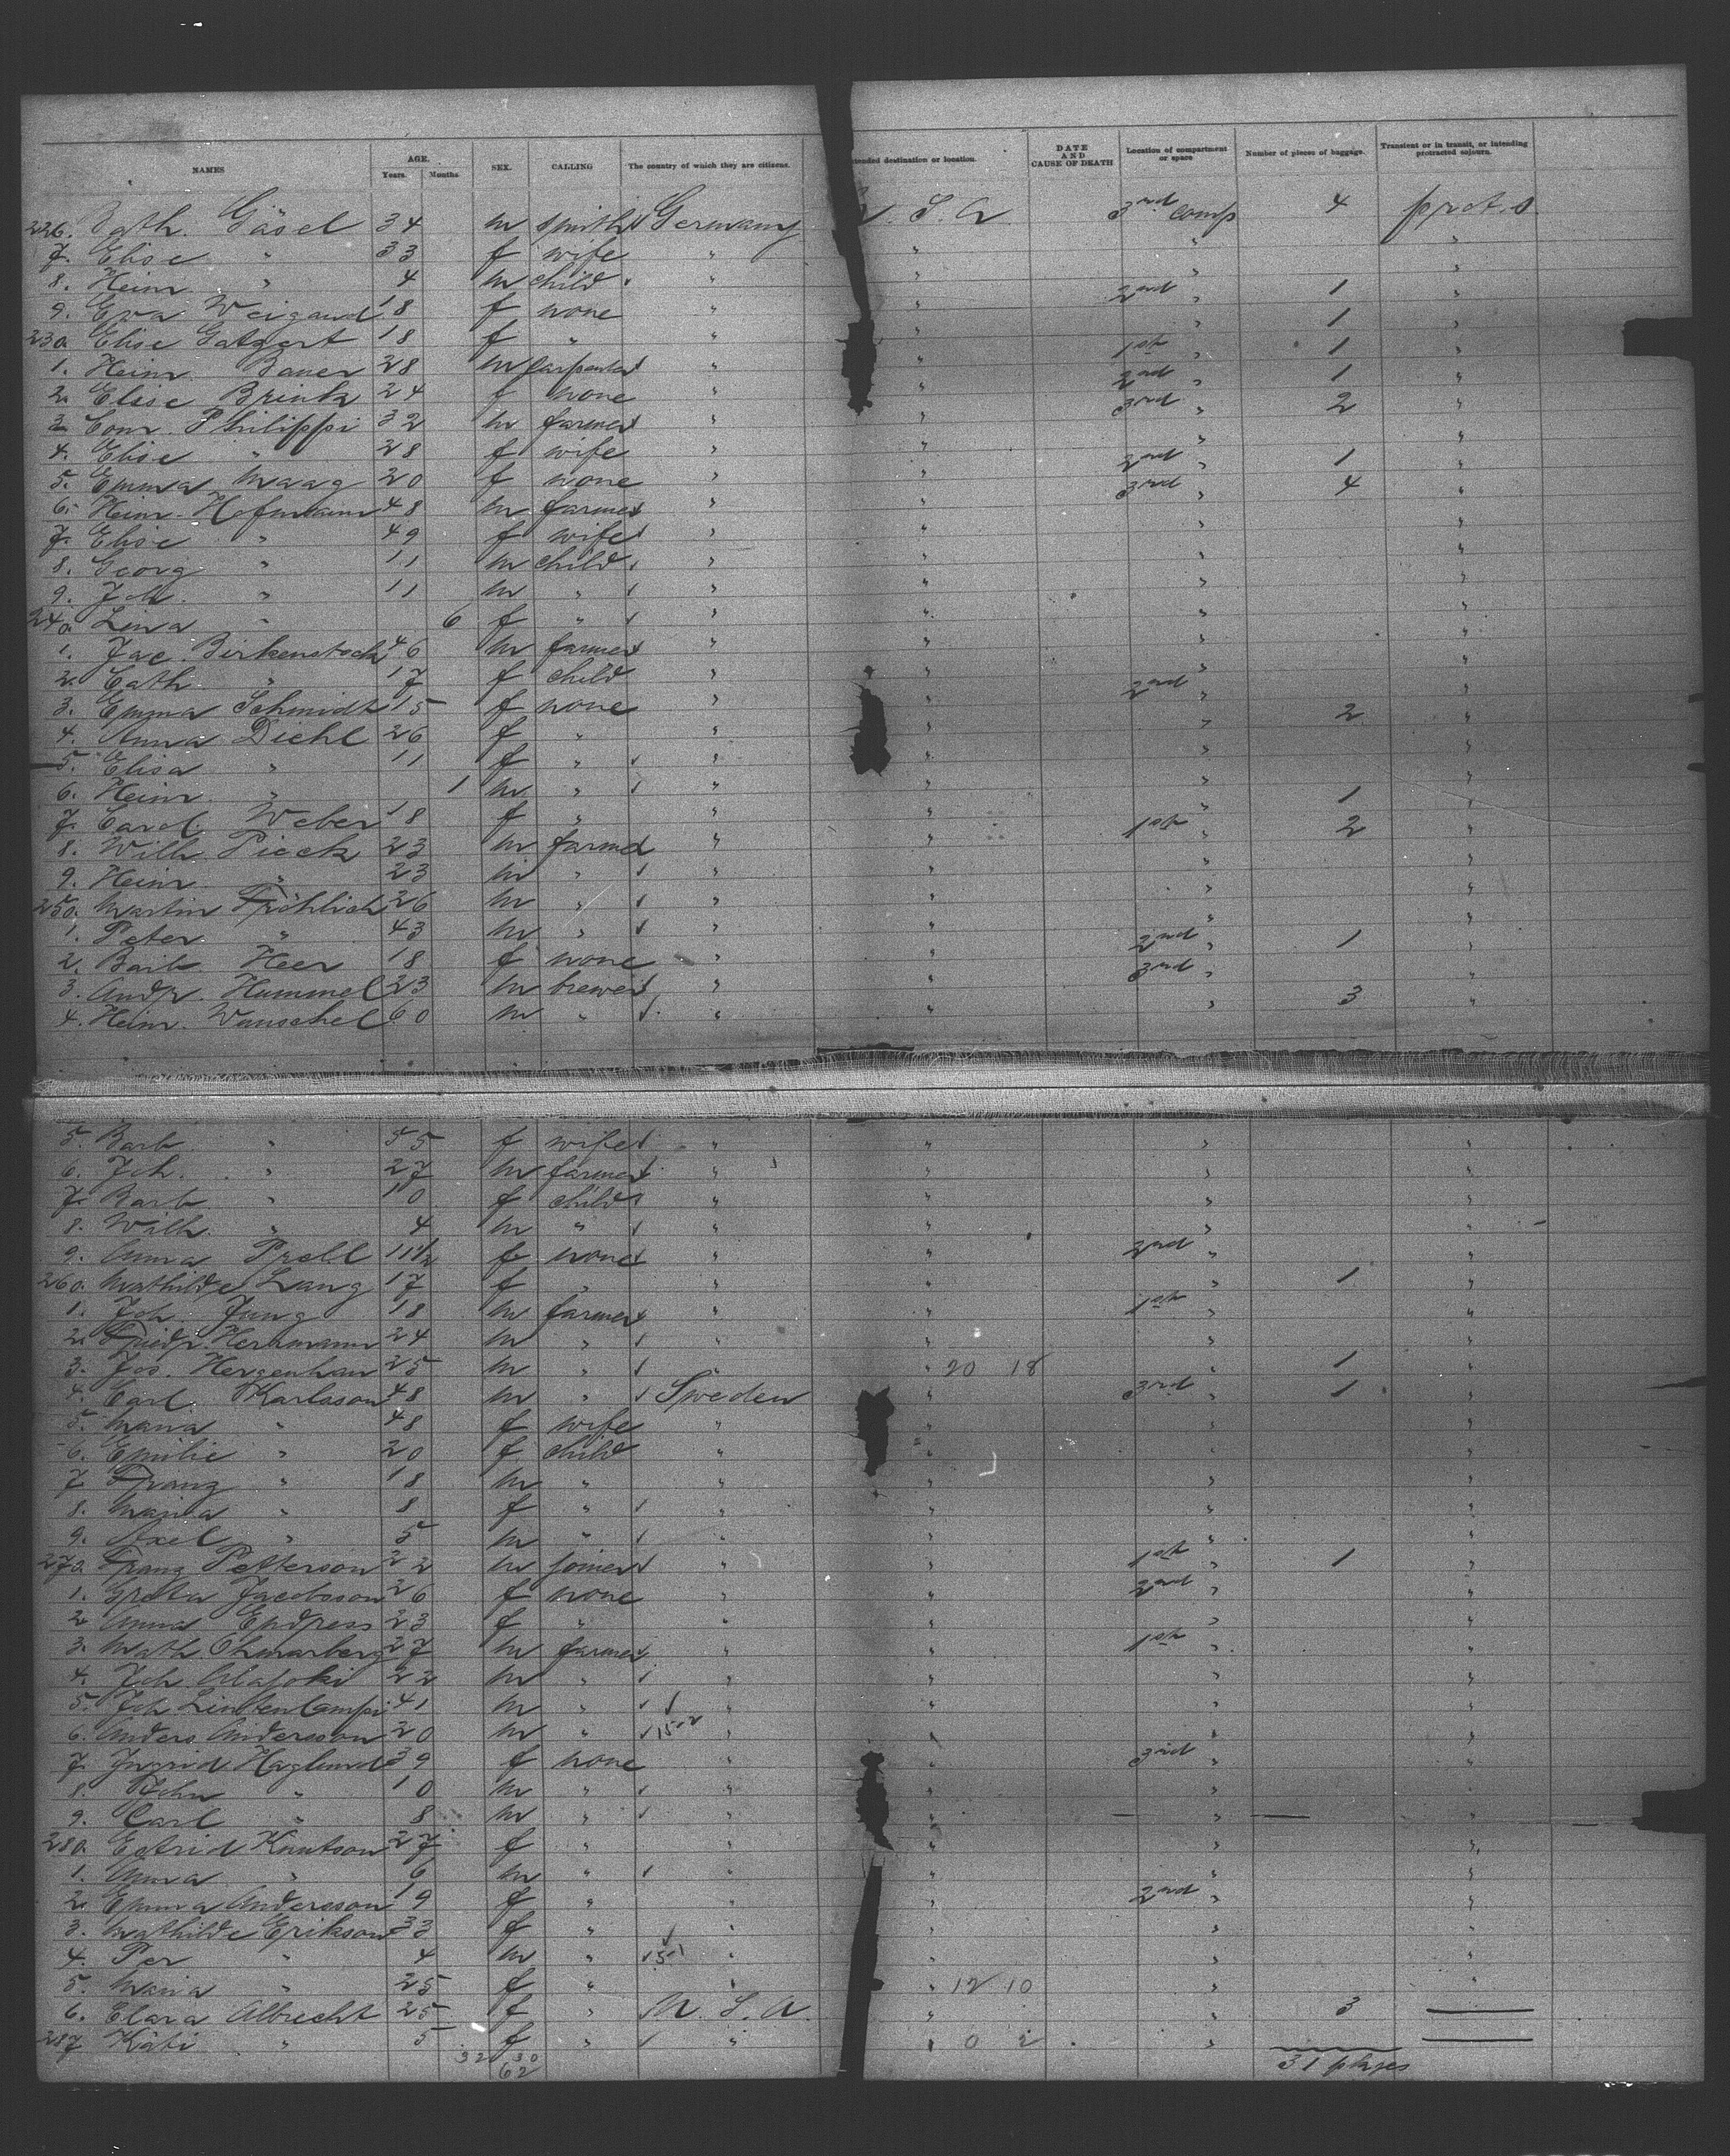 NAMES AGE. Years. Months. SEX. CALLING The country of which they are citizens. Intended destination or location. DATE AND CAUSE OF DEATH Location of compartment or space Number of pieces of baggage. Transient or in transit, or intending protracted sojourn.
226. Gäsel 34 m smith Germany U. S. A 3rd comp 4 prot. s
7. Elise " 33 f wife " " " "
8. Heinr. " 4 m child " " " "
9. Eva Weigand 18 f none " " 2nd " 1 "
230. Elise 18 f " " " " 1 "
1. Heinr. Bauer 28 m carpenter " " 1st " 1 "
2. Elise Brink 24 f none " " 2nd " 1 "
3. Conr. Philippi 32 m farmer " " 3rd " 2 "
4. Elise " 28 f wife " " " "
5. Emma Maag 20 f none " " 2nd " 1 "
6. Heinr. Hofmann 48 m farmer " " 3rd " 4 "
7. Elise " 49 f wife " " " "
8. Georg " 11 m child " " " "
9. Joh. " 11 m " " " " "
240. Lina " 6 f " " " " "
1. Jac. Birkenstock 46 m farmer " " " "
2. Cath. " 17 f child " " " "
3. Emma Schmidt 15 f none " " 2nd " "
4. Anna Diehl 26 f " " " " 2 "
5. Elisa " 11 f " " " " "
6. Heinr. " 1 m " " " " "
7. Carol. Weber 18 f " " " " 1 "
8. Wilh. Pieck 23 m farmer " " 1st " 2 "
9. Heinr. " 23 m " " " " "
250. Martin Fröhlich 26 m " " " " "
1. Peter " 43 m " " " " "
2. Barb. Heer 18 f none " " 2nd " 1 "
3. Andr. Hummel 23 m brewer " " 3rd " "
4. Heinr. Wauschel 60 m " " " " 3 "
5. Barb. " 55 f wife " " " "
6. Joh. " 27 m farmer " " " "
7. Barb. " 10 f child " " " "
8. Wilh. " 4 m " " " " "
9. Anna Prell 11 1/2 f none " " 2nd " "
260. Mathilde Lang 17 f " " " " 1 "
1. Joh. Jung 18 m farmer " " 1st " "
2. Friedr. Herrmann 24 m " " " " "
3. Jos. Hergenhan 25 m " " " 20 18 " 1 "
4. Carl Karlsson 48 m " Sweden " 3rd " 1 "
5. Maria " 48 f wife " " " "
6. Emilie " 20 f child " " " "
7. Franz " 18 m " " " " "
8. Maria " 8 f " " " " "
9. Axel " 5 m " " " " "
270. Franz Petterson 22 m joiner " " 1st " 1 "
1. Greta Jacobsson 26 f none " " 2nd " "
2. Anna Endress 23 f " " " " "
3. Math. 27 m farmer " " 1st " "
4. Joh. 22 m " " " " "
5. Joh. 41 m " " " " "
6. Anders Andersson 20 m " " " " "
7. Ingrid Haglund 39 f none " " 3rd " "
8. John " 10 m " " " " "
9. Carl " 8 m " " " " "
280. Estrid Knutson 27 f " " " " "
1. Anna " 6 m " " " " "
2. Emma Andersson 19 f " " " 2nd " "
3. Mathilde Erikson 33 f " " " " "
4. Per " 4 m " " " " "
5. Maria " 25 f " " " 12 10 " "
6. Clara Albrecht 25 f " U. S. A. " " 3
287 Käti " 5 f " " " 0 2 "
32 30
62
31 pkges